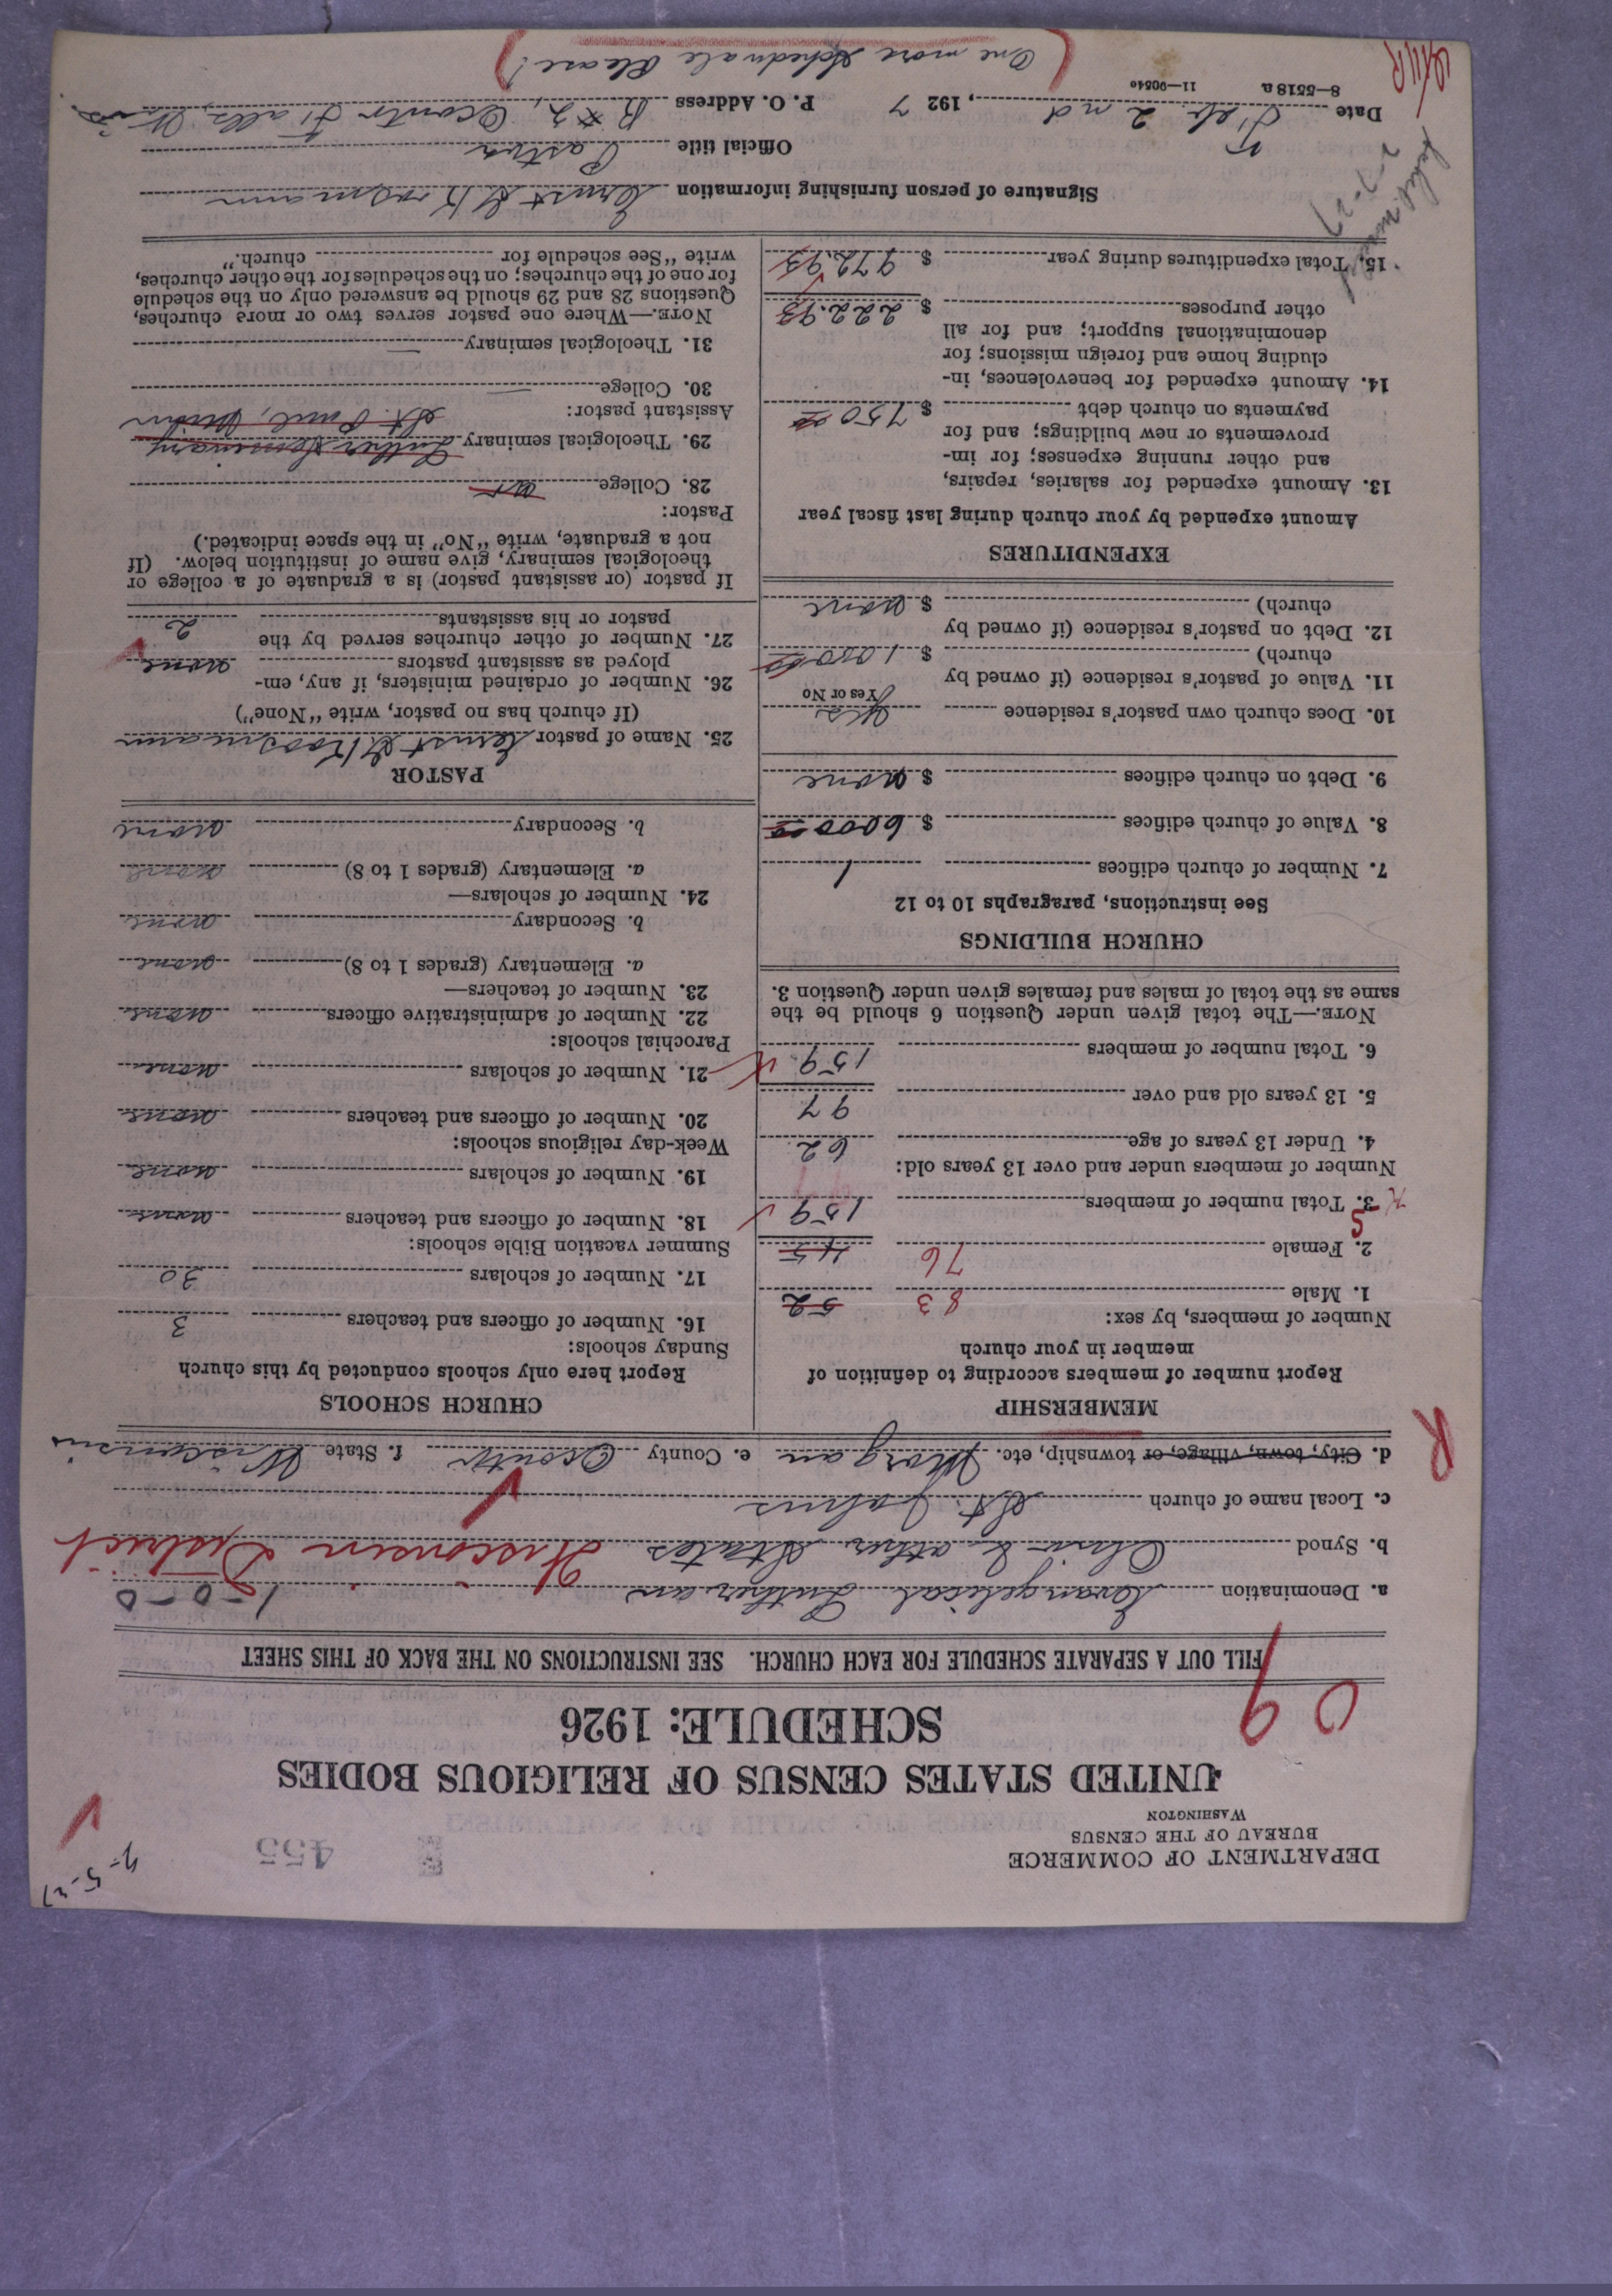 DEPARTMENT OF COMMERCE
BUREAU OF THE CENSUS
WASHINGTON
455
UNITED STATES CENSUS OF RELIGIOUS BODIES
SCHEDULE: 1926
09
FILL OUT A SEPARATE SCHEDULE FOR EACH CHURCH. SEE INSTRUCTIONS ON THE BACK OF THIS SHEET
a. Denomination Evangelical Lutheran 1-0-0
b. Synod Ohio & other States Wisconsin District
c. Local name of church St. Johns
d. City, town, village, or township, etc. Morgan e. County Oconto f. State Wisconsin
R
MEMBERSHIP
Report number of members according to definition of
member in your church
Number of members, by sex:
1. Male 83 52
2. Female 76 45
3. Total number of members 159
Number of members under and over 13 years old:
4. Under 13 years of age 62
5. 13 years old and over 97
6. Total number of members 159
NOTE.—The total given under Question 6 should be the
same as the total of males and females given under Question 3.
CHURCH BUILDINGS
See instructions, paragraphs 10 to 12
7. Number of church edifices 1
8. Value of church edifices $ 6000 00
9. Debt on church edifices $ none
10. Does church own pastor's residence yes
Yes or No
11. Value of pastor's residence (if owned by
church) $ 1000 00
12. Debt on pastor's residence (if owned by
church) $ none
EXPENDITURES
Amount expended by your church during last fiscal year
13. Amount expended for salaries, repairs,
and other running expenses; for im-
provements or new buildings; and for
payments on church debt $ 750 00
14. Amount expended for benevolences, in-
cluding home and foreign missions; for
denominational support; and for all
other purposes $ 222.93
15. Total expenditures during year $ 972.93
CHURCH SCHOOLS
Report here only schools conducted by this church
Sunday schools:
16. Number of officers and teachers 3
17. Number of scholars 30
Summer vacation Bible schools:
18. Number of officers and teachers none
19. Number of scholars none
Week-day religious schools:
20. Number of officers and teachers none
21. Number of scholars none
Parochial schools:
22. Number of administrative officers none
23. Number of teachers—
a. Elementary (grades 1 to 8) none
b. Secondary none
24. Number of scholars—
a. Elementary (grades 1 to 8) none
b. Secondary none
PASTOR
25. Name of pastor Ernst G Kroosmann
(If church has no pastor, write "None")
26. Number of ordained ministers, if any, em-
ployed as assistant pastors none
27. Number of other churches served by the
pastor or his assistants 2
If pastor (or assistant pastor) is a graduate of a college or
theological seminary, give name of institution below. (If
not a graduate, write "No" in the space indicated.)
Pastor:
28. College
29. Theological seminary Luther Seminary
St. Paul, Minn
Assistant pastor:
30. College
31. Theological seminary
NOTE.—Where one pastor serves two or more churches,
Questions 28 and 29 should be answered only on the schedule
for one of the churches; on the schedules for the other churches,
write "See schedule for church."
Signature of person furnishing information Ernst G Kroosmann
Official title Pastor
Date Feb. 2nd, 1927 P. O. Address R #2, Oconto Falls, Wis
8—5518 a 11—90540
One more Schedule Please!